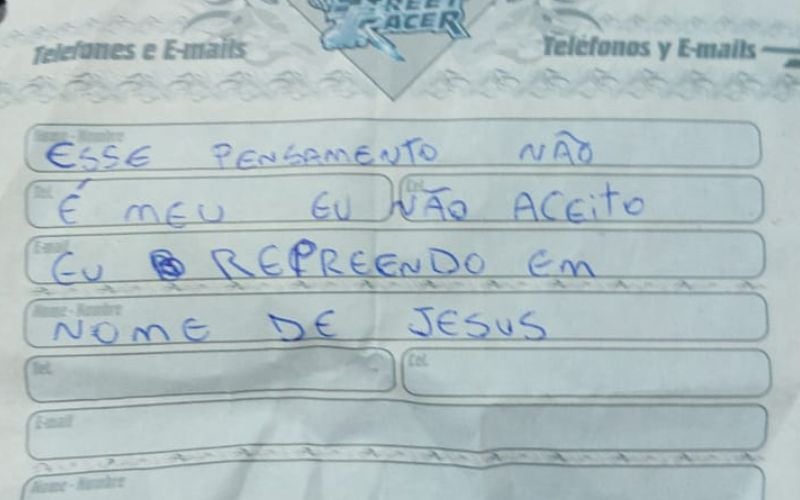 STREET
RACER
Telefones e E-mails
Teléfonos y E-mails
Nome - Nombre
ESSE PENSAMENTO NÃO
Tel. Cel.
É MEU EU NÃO ACEiTO
E-mail
EU REPREENDO Em
Nome - Nombre
NOME DE JESUS
Tel. Cel.
E-mail
Nome - Nombre